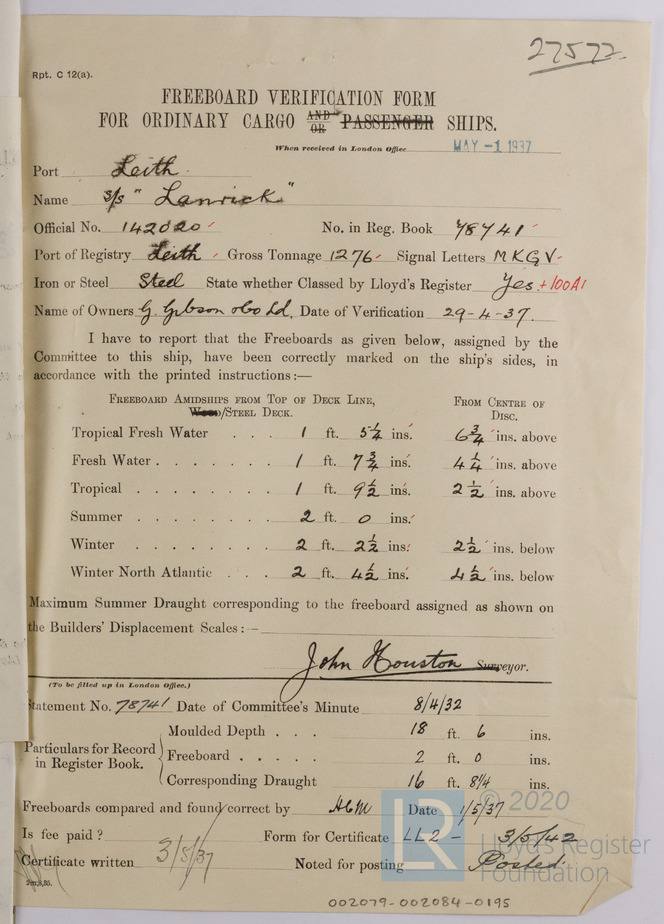 27577.
Rpt. C 12(a).
FREEBOARD VERIFICATION FORM
FOR ORDINARY CARGO AND OR PASSENGER SHIPS.
When received in London Office MAY -1 1937
Port Leith
Name s/s "Lanrick"
Official No. 142020 No. in Reg. Book 78741
Port of Registry Leith Gross Tonnage 1276 Signal Letters MKGV
Iron or Steel Steel State whether Classed by Lloyd's Register Yes +100A1
Name of Owners G. Gibson & Co Ld. Date of Verification 29-4-37.
I have to report that the Freeboards as given below, assigned by the
Committee to this ship, have been correctly marked on the ship's sides, in
accordance with the printed instructions:—
FREEBOARD AMIDSHIPS FROM TOP OF DECK LINE, FROM CENTRE OF
WOOD/STEEL DECK. DISC.
Tropical Fresh Water . . . 1 ft. 5 1/4 ins. 6 3/4 ins. above
Fresh Water . . . . . . . 1 ft. 7 3/4 ins. 4 1/4 ins. above
Tropical . . . . . . . . 1 ft. 9 1/2 ins. 2 1/2 ins. above
Summer . . . . . . . . 2 ft. 0 ins.
Winter . . . . . . . . 2 ft. 2 1/2 ins. 2 1/2 ins. below
Winter North Atlantic . . . 2 ft. 4 1/2 ins. 4 1/2 ins. below
Maximum Summer Draught corresponding to the freeboard assigned as shown on
the Builders' Displacement Scales:—
John Houston Surveyor.
(To be filled up in London Office.)
Statement No. 78741 Date of Committee's Minute 8/4/32
Particulars for Record in Register Book.
Moulded Depth . . . 18 ft. 6 ins.
Freeboard . . . . . 2 ft. 0 ins.
Corresponding Draught 16 ft. 8 1/4 ins.
Freeboards compared and found correct by Date 1/5/37
Is fee paid? Form for Certificate LL2 - 3/5/42
Certificate written 3/5/37 Noted for posting Posted.
2m,8,35.
© 2020
Lloyd's Register
Foundation
LR
002079-002084-0195